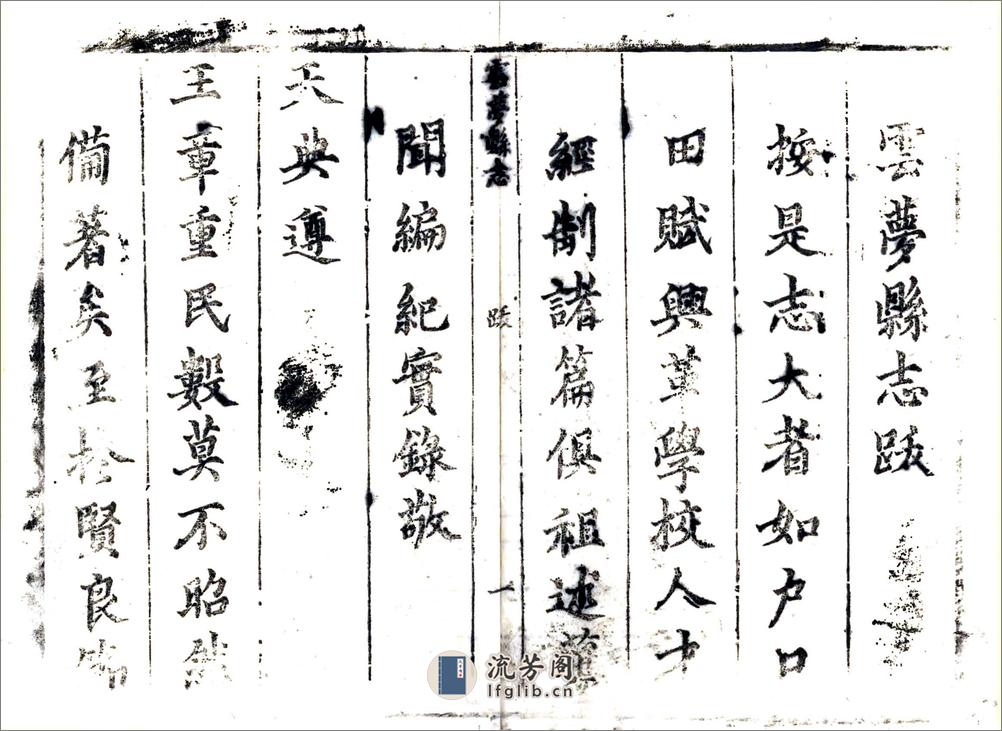 雲夢縣志跋
按是志大者如户口
田賦興革學校人才
經制諸篇俱祖述舊
聞編紀實錄敬
雲夢縣志
跋
一
天典遵
王章重民數莫不昭然
備著矣至於賢良
流芳阁
lfglib.cn